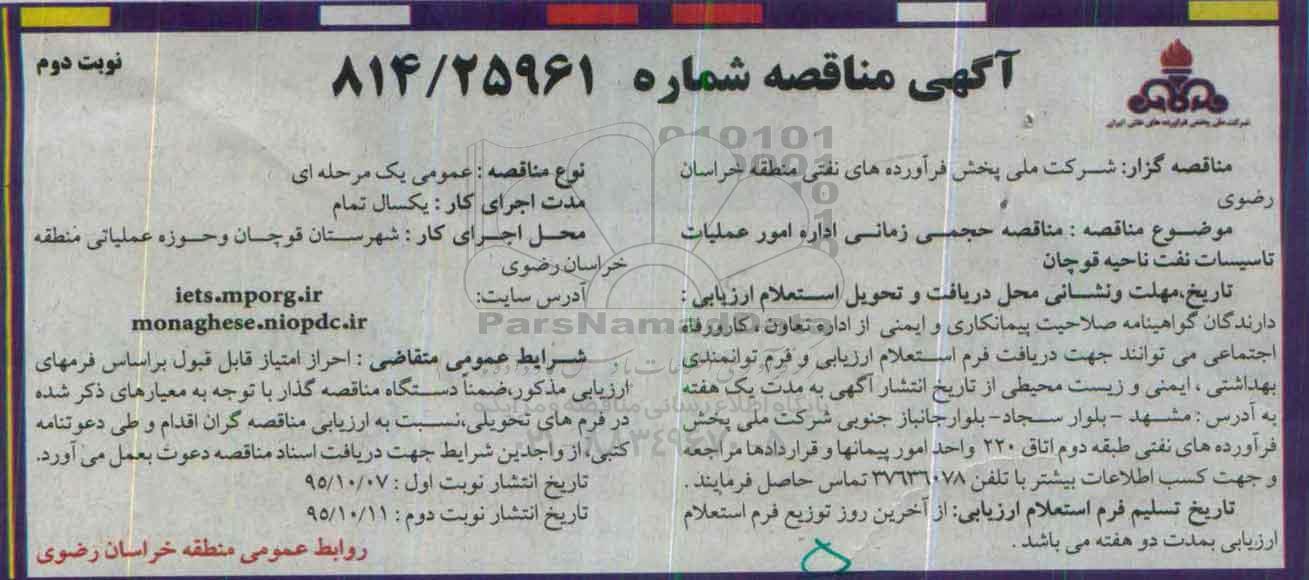 نوبت دوم
آگهی مناقصه شماره ۸۱۴/۲۵۹۶۱
شرکت ملی پخش فرآورده های نفتی ایران
مناقصه گزار: شرکت ملی پخش فرآورده های نفتی منطقه خراسان
رضوی
موضوع مناقصه : مناقصه حجمی زمانی اداره امور عملیات
تاسیسات نفت ناحیه قوچان
تاریخ،مهلت ونشانی محل دریافت و تحویل استعلام ارزیابی :
دارندگان گواهینامه صلاحیت پیمانکاری و ایمنی از اداره تعاون ، کارورفاه
اجتماعی می توانند جهت دریافت فرم استعلام ارزیابی و فرم توانمندی
بهداشتی ، ایمنی و زیست محیطی از تاریخ انتشار آگهی به مدت یک هفته
به آدرس : مشهد - بلوار سجاد- بلوارجانباز جنوبی شرکت ملی پخش
فرآورده های نفتی طبقه دوم اتاق ۲۲۰ واحد امور پیمانها و قراردادها مراجعه
و جهت کسب اطلاعات بیشتر با تلفن ۳۷۶۳۶۰۷۸ تماس حاصل فرمایند .
تاریخ تسلیم فرم استعلام ارزیابی: از آخرین روز توزیع فرم استعلام
ارزیابی بمدت دو هفته می باشد .
نوع مناقصه : عمومی یک مرحله ای
مدت اجرای کار : یکسال تمام
محل اجرای کار : شهرستان قوچان وحوزه عملیاتی منطقه
خراسان رضوی
آدرس سایت: iets.mporg.ir
monaghese.niopdc.ir
شرایط عمومی متقاضی : احراز امتیاز قابل قبول براساس فرمهای
ارزیابی مذکور،ضمناً دستگاه مناقصه گذار با توجه به معیارهای ذکر شده
در فرم های تحویلی،نسبت به ارزیابی مناقصه گران اقدام و طی دعوتنامه
کتبی، از واجدین شرایط جهت دریافت اسناد مناقصه دعوت بعمل می آورد.
تاریخ انتشار نوبت اول : ۹۵/۱۰/۰۷
تاریخ انتشار نوبت دوم : ۹۵/۱۰/۱۱
روابط عمومی منطقه خراسان رضوی
ParsNamadData